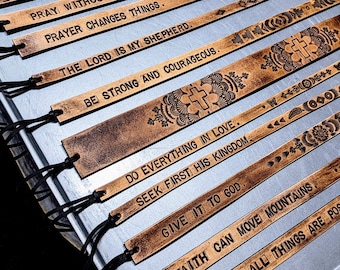 PRAY WITHOUT
PRAYER CHANGES THINGS.
THE LORD IS MY SHEPHERD.
BE STRONG AND COURAGEOUS.
DO EVERYTHING IN LOVE.
SEEK FIRST HIS KINGDOM
GIVE IT TO GOD
FAITH CAN MOVE MOUNTAINS
ALL THINGS ARE POS